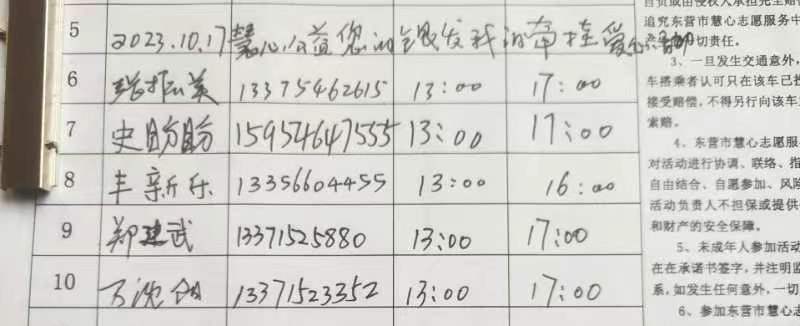 5 2023.10.17慧心公益您的银发我的牵挂爱心
6 张振英 13375462615 13:00 17:00
7 史盼盼 15957647555 13:00 17:00
8 丰新乐 13356604455 13:00 16:00
9 郑建武 13371525880 13:00 17:00
10 13371523352 13:00 17:00
追究东营市慧心志愿服务中
切责任。
3、一旦发生交通意外，
车搭乘者认可只在该车已投
接受赔偿，不得另行向该车
索赔。
4、东营市慧心志愿服
对活动进行协调、联络、指
自由结合、自愿参加、风险
活动负责人不担保或提供
和财产的安全保障。
5、未成年人参加活动
在在承诺书签字，并注明监
系，如发生任何意外，一切
6、参加东营市慧心志